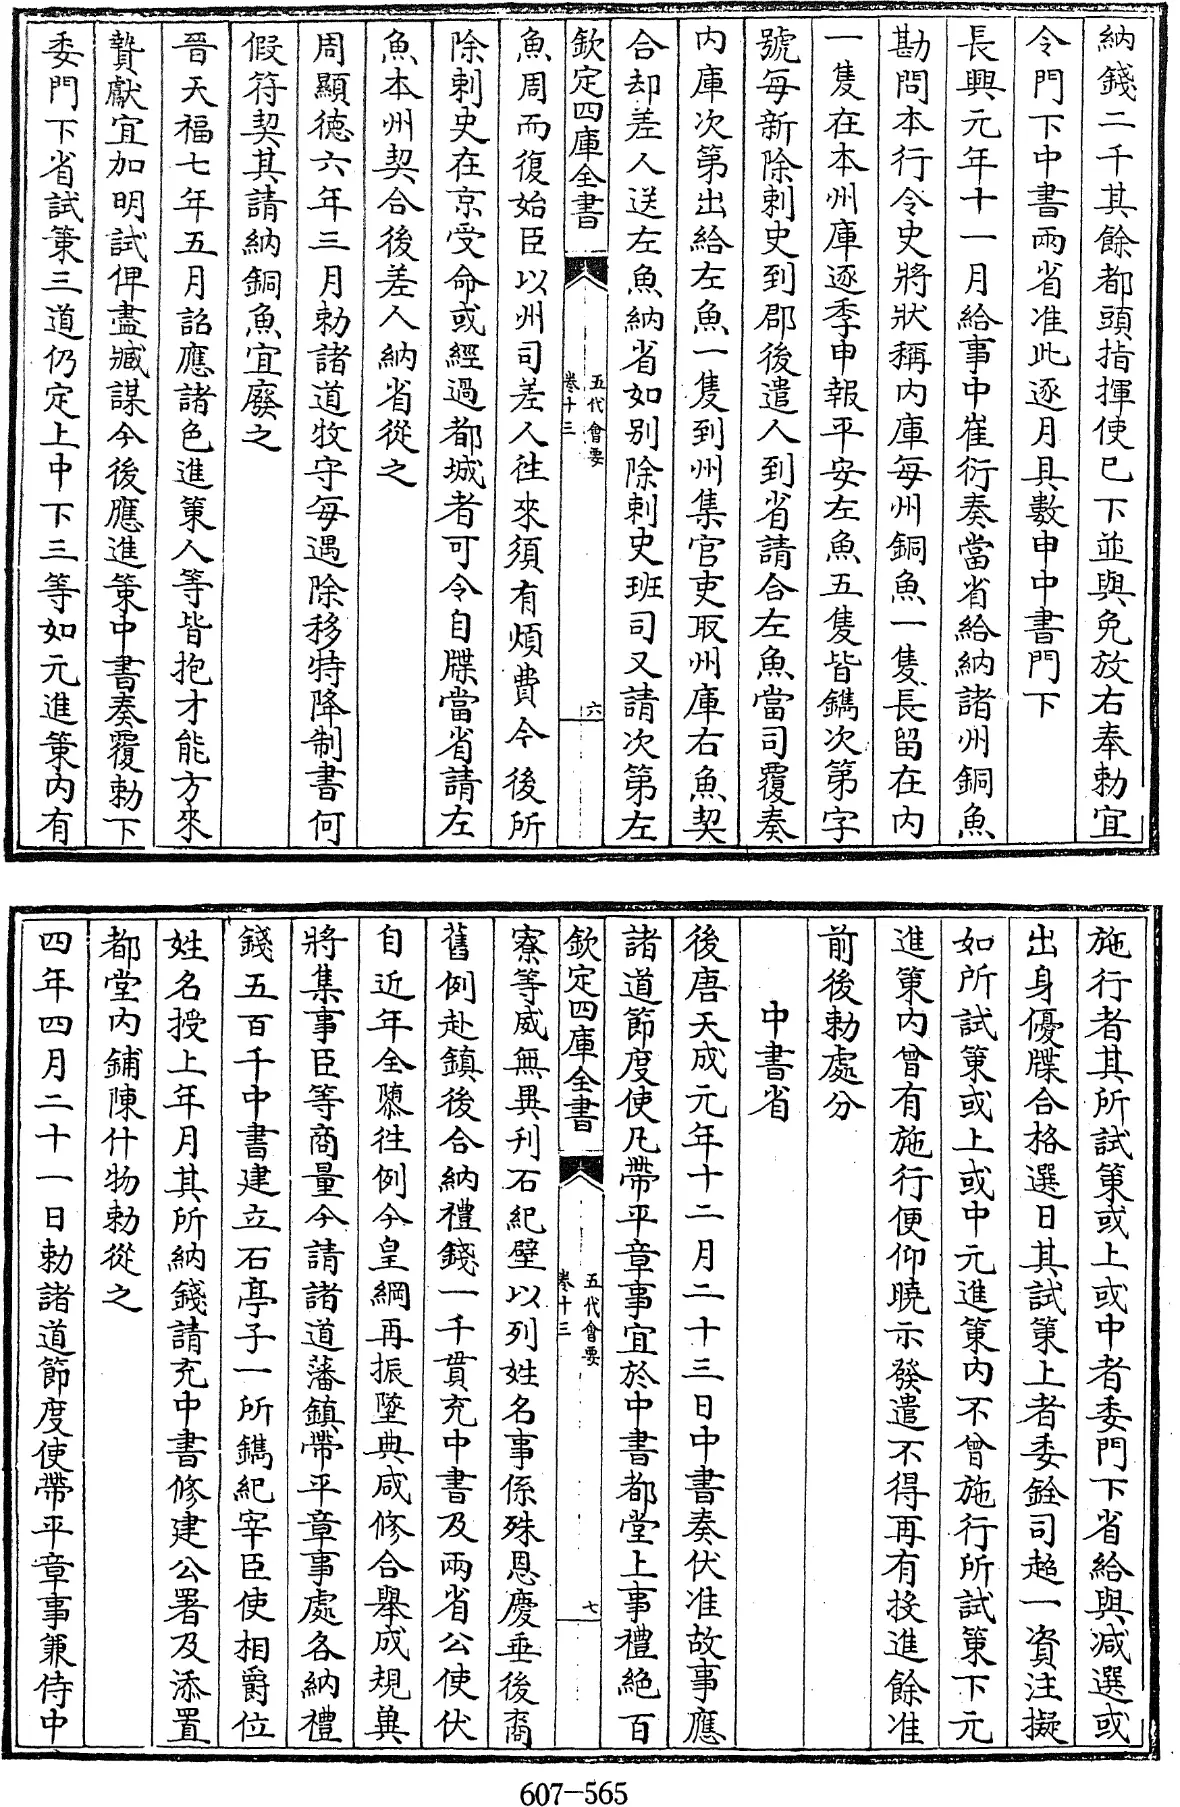 納錢二千其餘都頭指揮使已下並與免放右奉勅宜
令門下中書兩省准此逐月具數申中書門下
長興元年十一月給事中崔衍奏當省給納諸州銅魚
勘問本行令史將狀稱内庫每州銅魚一隻長留在内
一隻在本州庫逐季申報平安左魚五隻皆鐫次第字
號每新除刺史到郡後遣人到省請合左魚當司覆奏
内庫次第出給左魚一隻到州集官吏取州庫右魚契
合却差人送左魚納省如別除刺史班司又請次第左
欽定四庫全書
五代會要
卷十三
六
魚周而復始臣以州司差人往來須有煩費今後所
除刺史在京受命或經過都城者可令自牒當省請左
魚本州契合後差人納省從之
周顯德六年三月勅諸道牧守每遇除移特降制書何
假符契其請納銅魚宜廢之
晉天福七年五月詔應諸色進策人等皆抱才能方來
贄獻宜加明試俾盡臧謀今後應進策中書奏覆勅下
委門下省試策三道仍定上中下三等如元進策内有
施行者其所試策或上或中者委門下省給與減選或
出身優牒合格選日其試策上者委銓司超一資注擬
如所試策或上或中元進策内不曾施行所試策下元
進策内曾有施行便仰曉示發遣不得再有投進餘准
前後勅處分
中書省
後唐天成元年十二月二十三日中書奏伏准故事應
諸道節度使凡帶平章事宜於中書都堂上事禮絶百
欽定四庫全書
五代會要
卷十三
七
寮等威無異刊石紀壁以列姓名事係殊恩慶垂後裔
舊例赴鎮後合納禮錢一千貫充中書及兩省公使伏
自近年全隳往例今皇綱再振墜典咸修合舉成規冀
將集事臣等商量今請諸道藩鎮帶平章事處各納禮
錢五百千中書建立石亭子一所鐫紀宰臣使相爵位
姓名授上年月其所納錢請充中書修建公署及添置
都堂内鋪陳什物勅從之
四年四月二十一日勅諸道節度使帶平章事兼侍中
607-565